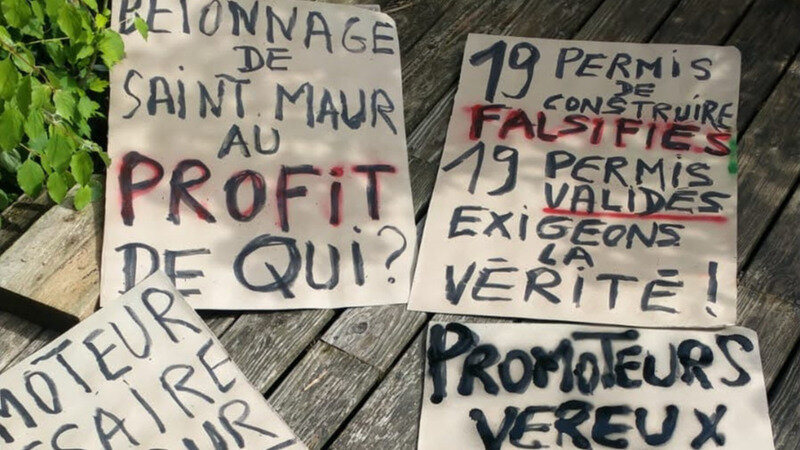 BETONNAGE
DE
SAINT. MAUR
AU
PROFIT
DE QUI ?
19 PERMIS
DE
CONSTRUIRE
FALSIFIES
19 PERMIS
VALIDES
EXIGEONS
LA
VÉRITÉ !
MOTEUR
SSAIRE
PROMOTEURS
VEREUX